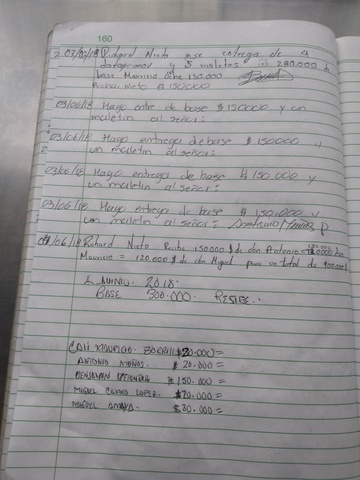 160
03/06/18 Richard Nieto hace entrega de 4
datafonos y 5 maletas 280.000 de
base Mauricio debe 130.000
Richar Nieto $ 150000
03/06/18 Hago entre de base $ 150000 y un
maletin al señor:
03/06/18 Hago entrega de base $ 150000 y
un maletin al señor:
03/06/18 Hago entrega de base $ 150.000 y
un maletin al señor:
03/06/18 Hago entrega de base $ 150.000 y
un maletin al señor:
04/06/18 Richard Nieto Recibe 150.000 $ de don Antonio =
Mauricio = 120.000 $ de don Miguel para un total de
4 JUNIO 2018.
BASE 500.000. RECIBE.
MAURICIO $20.000=
ANTONIO $ 20.000=
BENJAMIN $ 150.000=
MIGUEL LOPEZ. $20.000=
MIGUEL $30.000=